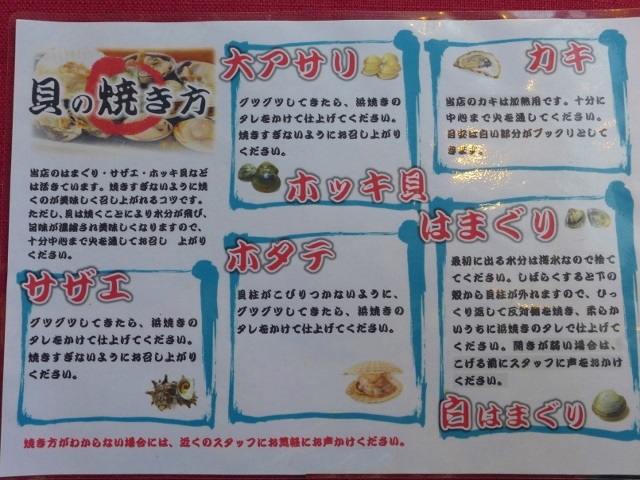 貝の焼き方
当店のはまぐり・サザエ・ホッキ貝など
は活きています。焼きすぎないように焼
くのが美味しく召し上がれるコツです。
ただし、貝は焼くことにより水分が飛び、
旨味が濃縮され美味しくなりますので、
十分中心まで火を通してお召し 上がり
ください。
大アサリ
グツグツしてきたら、浜焼きの
タレをかけて仕上げてください。
焼きすぎないようにお召し上がり
ください。
ホッキ貝
カキ
当店のカキは加熱用です。十分に
中心まで火を通してください。
目安は白い部分がプックリとして
きます。
サザエ
グツグツしてきたら、浜焼きの
タレをかけて仕上げてください。
焼きすぎないようにお召し上がり
ください。
ホタテ
貝柱がこびりつかないように、
グツグツしてきたら、浜焼きの
タレをかけて仕上げてください。
はまぐり
最初に出る水分は海水なので捨て
てください。しばらくすると下の
殻から貝柱が外れますので、ひっ
くり返して反対側を焼き、柔らか
いうちに浜焼きのタレで仕上げて
ください。開きが弱い場合は、
こげる前にスタッフに声をおかけ
ください。
白はまぐり
焼き方がわからない場合には、近くのスタッフにお気軽にお声かけください。